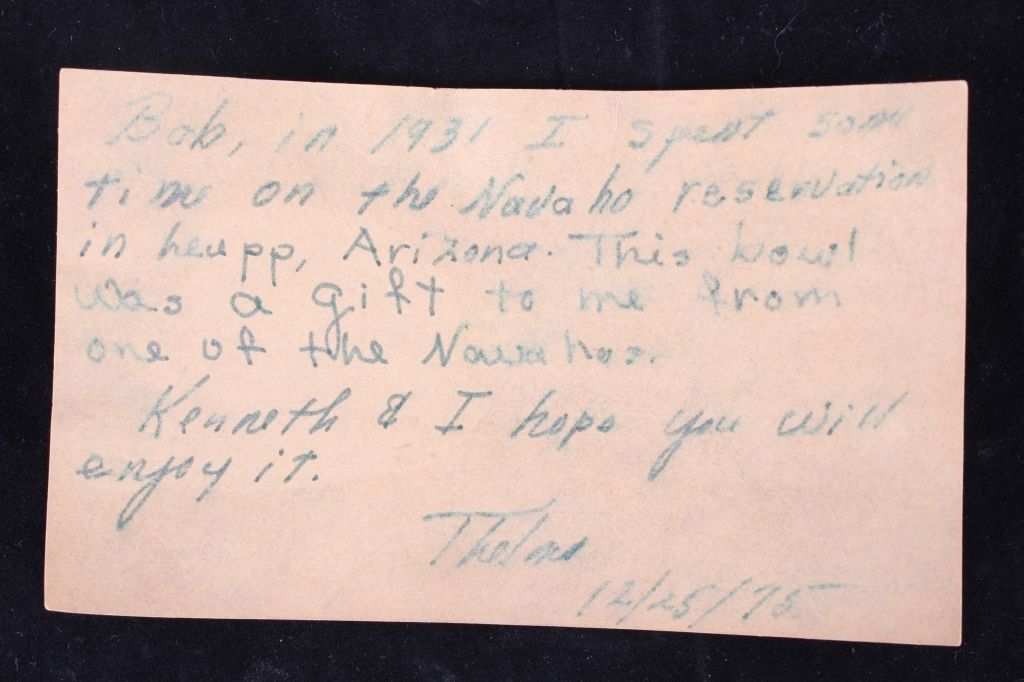 Bob, in 1931 I spent some
time on the Navaho reservation
in heupp, Arizona. This bowl
was a gift to me from
one of the Navahos.
Kenneth & I hope you will
enjoy it.
Thelma
12/25/75